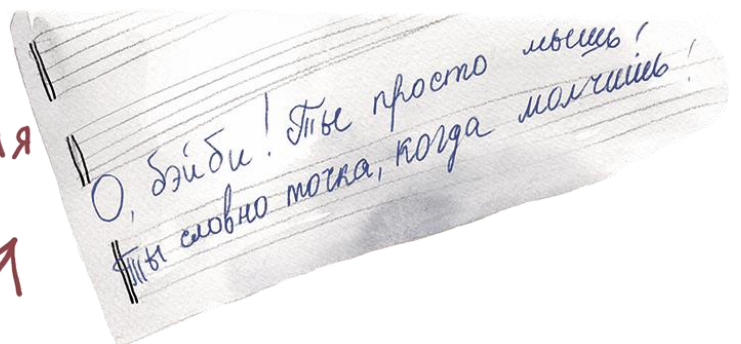 О, бэйби! Ты просто мышь!
Ты словно точка, когда молчишь!